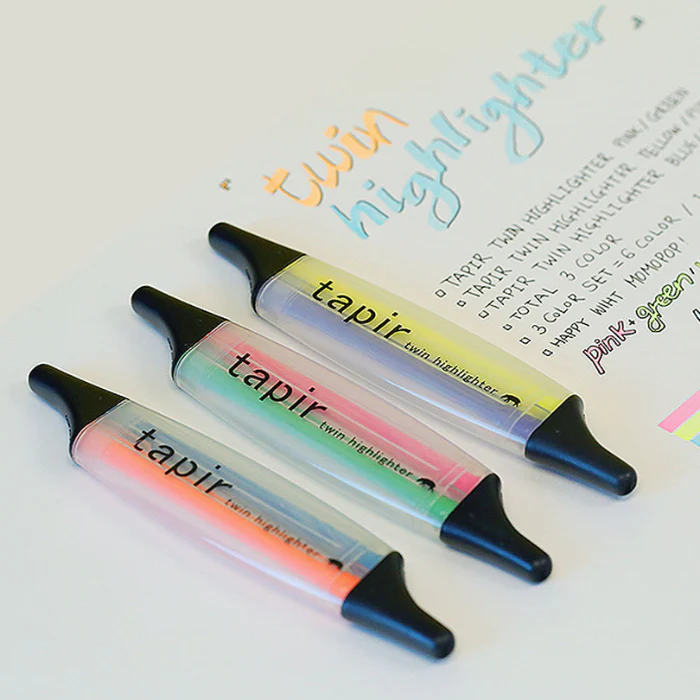 twin
highlighter
□ TAPIR TWIN HIGHLIGHTER PINK/GREEN
□ TAPIR TWIN HIGHLIGHTER YELLOW/
□ TAPIR TWIN HIGHLIGHTER BLUE/
□ TOTAL 3 COLOR
□ 3 COLOR SET = 6 COLOR /
□ HAPPY WIHT MOMOPOP!
pink + green/
tapir
twin-highlighter
tapir
twin-highlighter
tapir
twin-highlighter